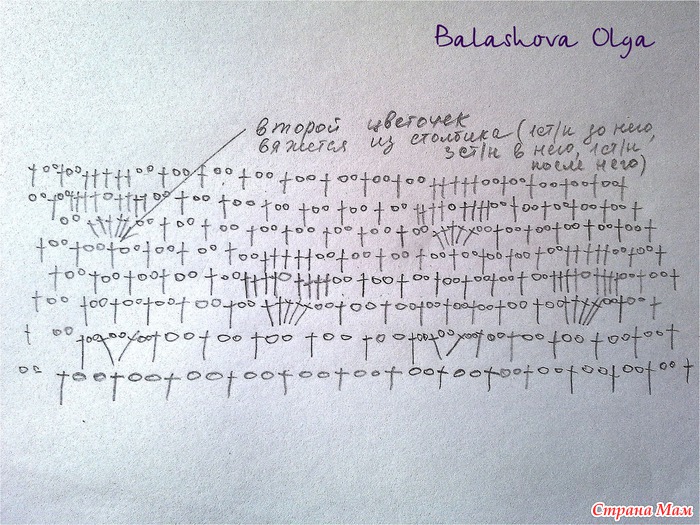 Balashova Olga
второй цветочек
вяжется из столбика (1ст/н до него,
3ст/н в него, 1ст/н
после него)
Страна Мам